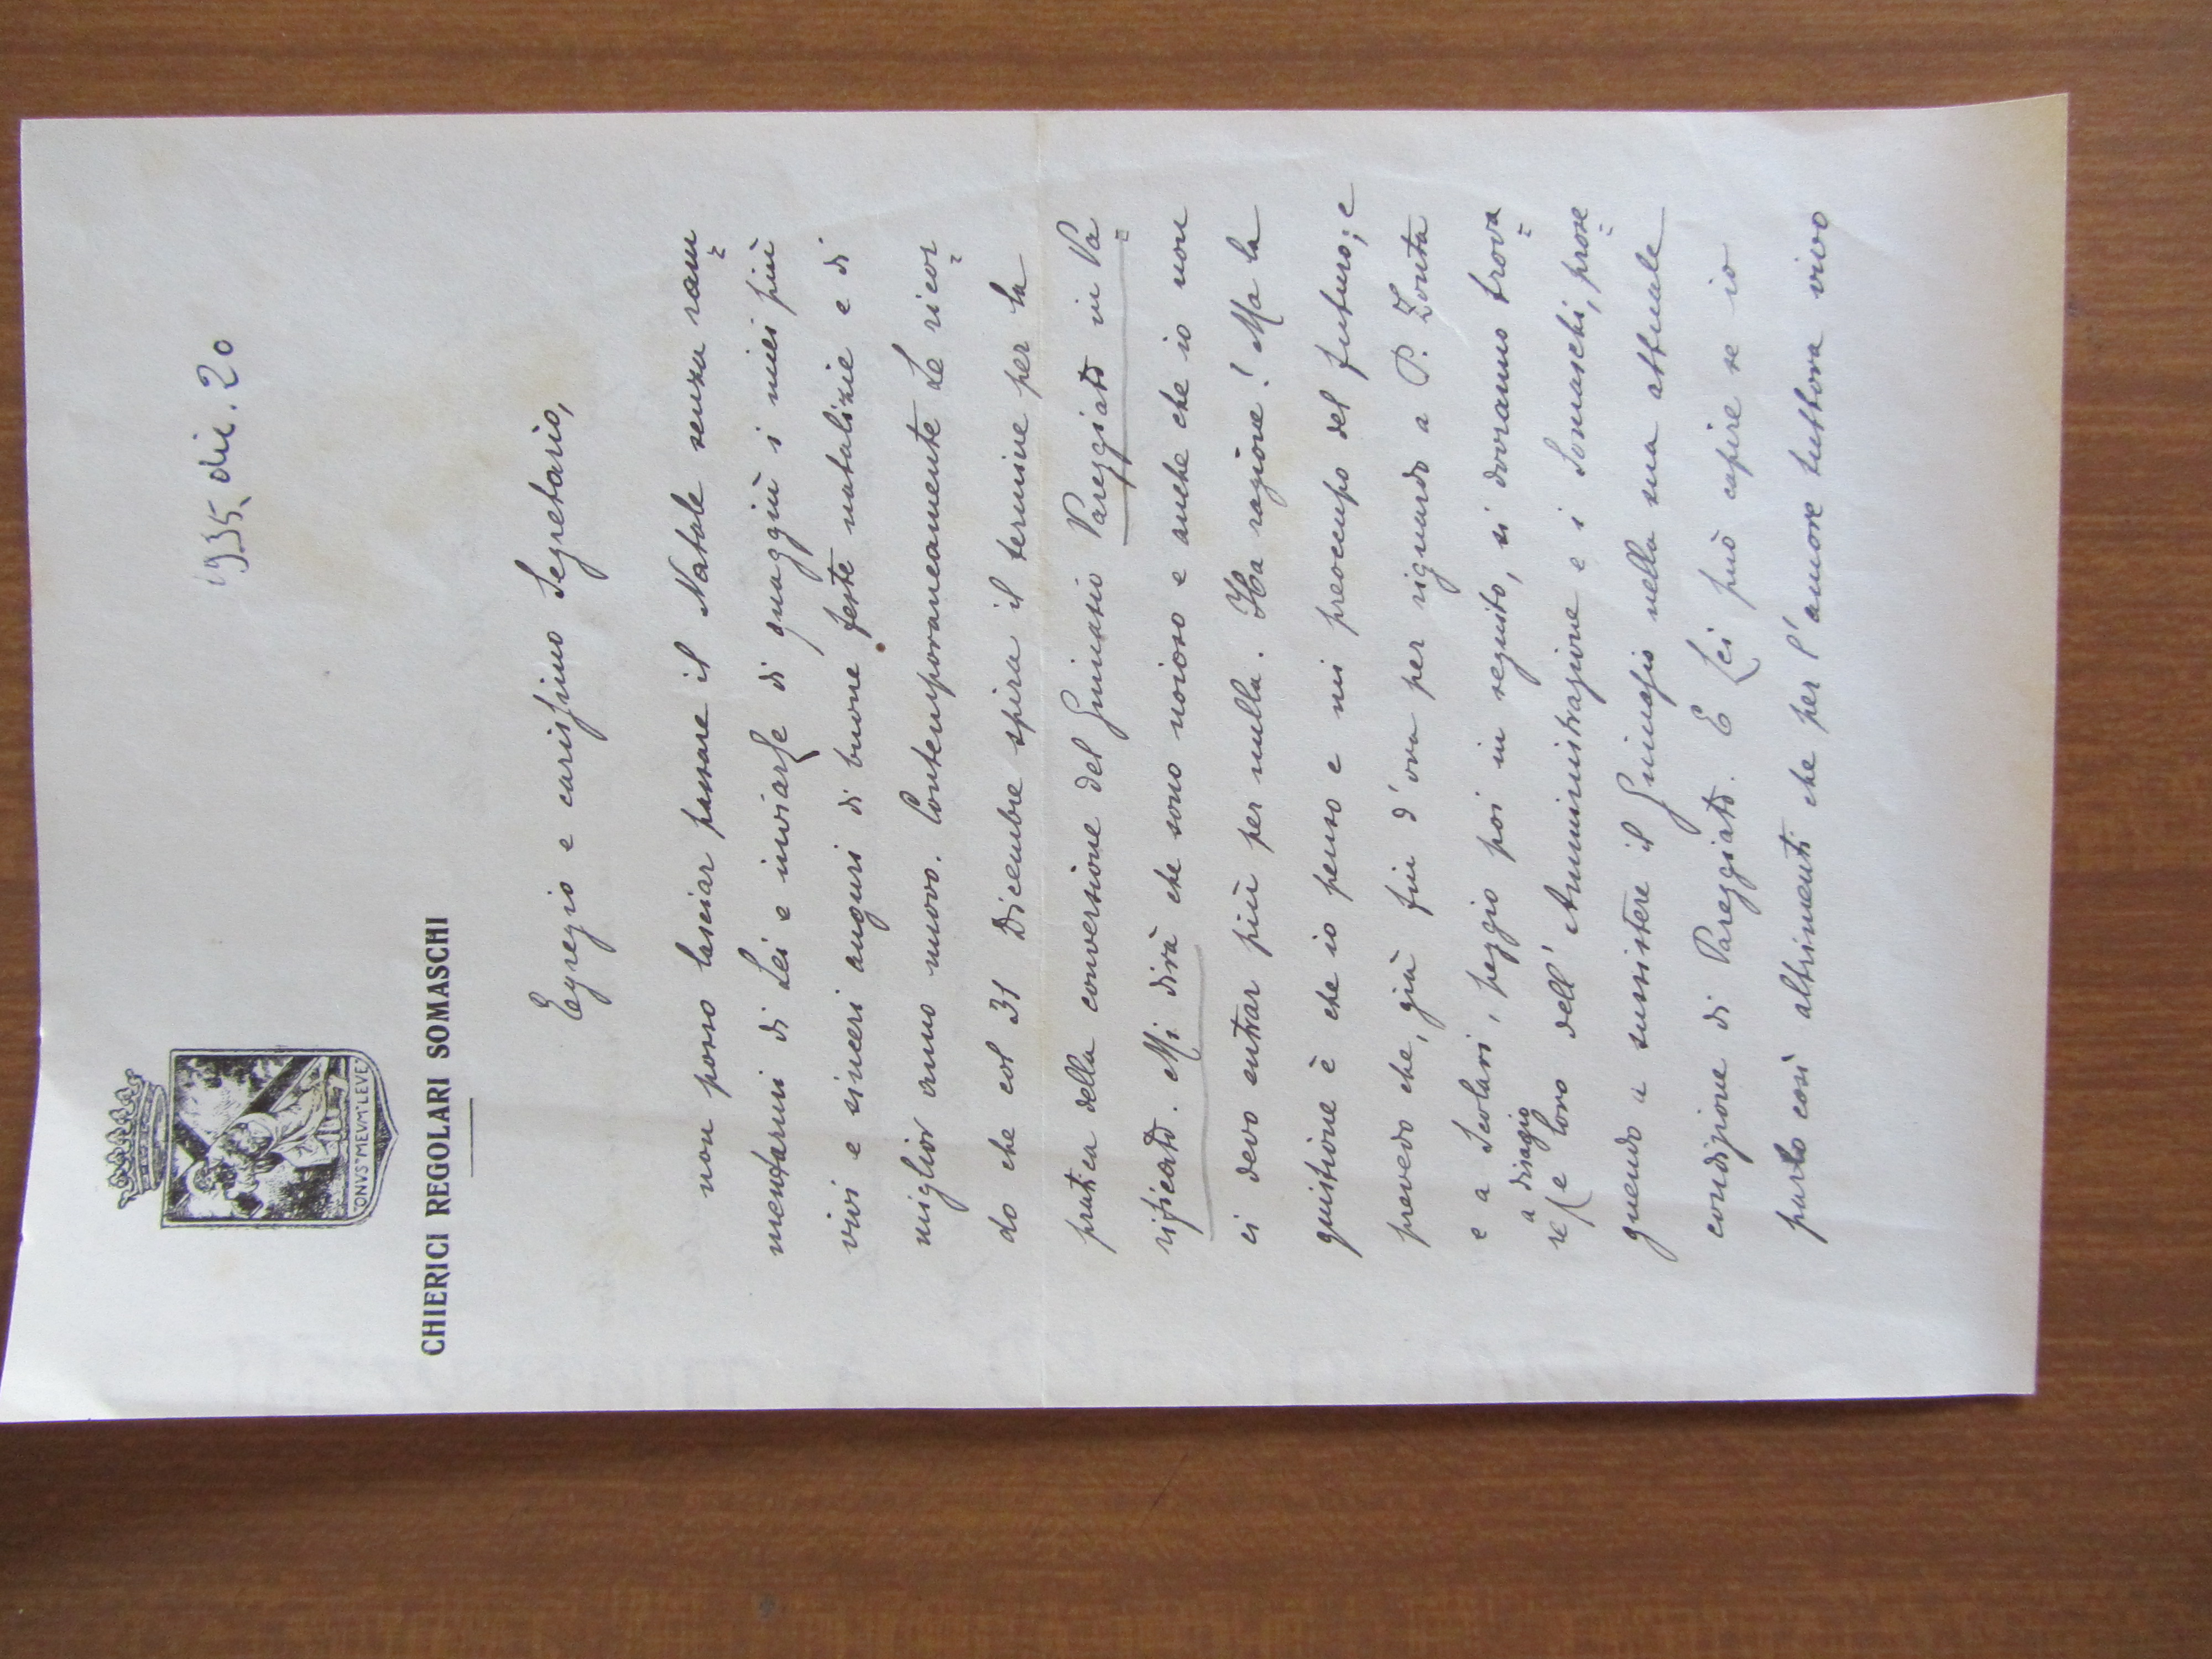 ONVS·MEVM·LEVE
CHIERICI REGOLARI SOMASCHI
1935, dic. 20
Egregio e carissimo Segretario,
non posso lasciar passare il Natale senza ram=
mentarmi di Lei e inviarLe di quaggiù i miei più
vivi e sinceri auguri di buone feste natalizie e di
miglior anno nuovo. Contemporaneamente Le ricor=
do che col 31 Dicembre spira il termine per la
pratica della conversione del Ginnasio Pareggiato in Pa=
rificato. Mi dirà che sono noioso e anche che io non
ci devo entrar più per nulla. Ha ragione! Ma la
quistione è che io penso e mi preoccupo del futuro; e
prevedo che, già fin d'ora per riguardo a P. Zonta
e a Scolari, peggio poi in seguito, si dovranno trova=
re a disagio e loro dell'Amministrazione e i Somaschi, prose=
guendo a sussistere il Ginnasio nella sua attuale
condizione di Pareggiato. E Lei può capire se io
parlo così altrimenti che per l'amore tuttora vivo